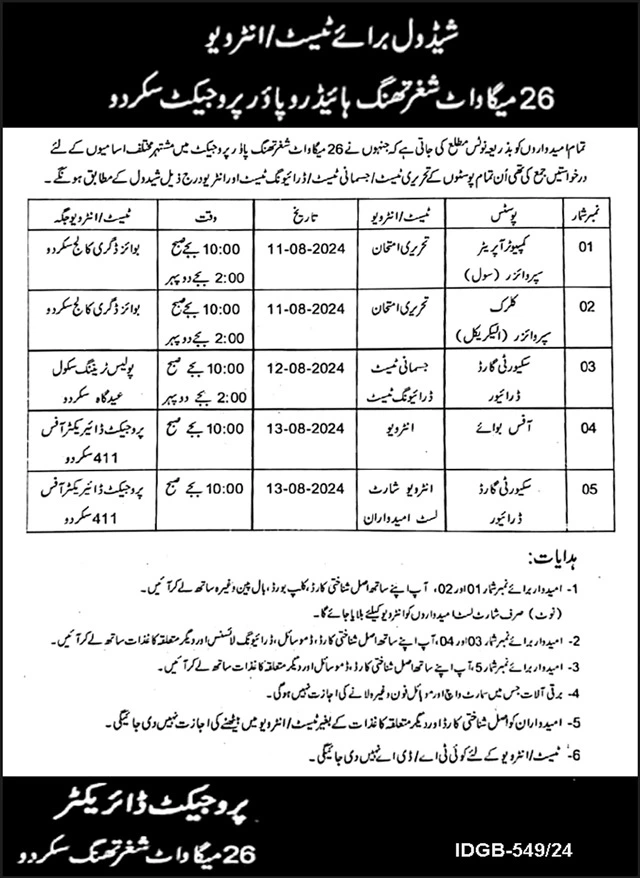 شیڈول برائے ٹیسٹ/انٹرویو
26 میگا واٹ شغرتھنگ ہائیڈرو پاؤر پروجیکٹ سکردو
تمام امیدواروں کو بذریعہ نوٹس مطلع کی جاتی ہے کہ جنہوں نے 26 میگا واٹ شغرتھنگ پاؤر پروجیکٹ میں مشتہر مختلف اسامیوں کے لئے
درخواستیں جمع کی تھی اُن تمام پوسٹوں کے تحریری ٹیسٹ/جسمانی ٹیسٹ/ڈرائیونگ ٹیسٹ اور انٹرویو درج ذیل شیڈول کے مطابق ہونگے۔
نمبر شمار پوسٹس ٹیسٹ/انٹرویو تاریخ وقت ٹیسٹ/انٹرویو جگہ
01 کمپیوٹر آپریٹر تحریری امتحان 11-08-2024 10:00 بجے صبح بوائز ڈگری کالج سکردو
سپروائزر (سول) 2:00 بجے دوپہر
02 کلرک تحریری امتحان 11-08-2024 10:00 بجے صبح بوائز ڈگری کالج سکردو
سپروائزر (الیکٹریکل) 2:00 بجے دوپہر
03 سکیورٹی گارڈ جسمانی ٹیسٹ 12-08-2024 10:00 بجے صبح پولیس ٹریننگ سکول
ڈرائیور ڈرائیونگ ٹیسٹ 2:00 بجے دوپہر عیدگاہ سکردو
04 آفس بوائے انٹرویو 13-08-2024 10:00 بجے صبح پروجیکٹ ڈائیریکٹر آفس
411 سکردو
05 سکیورٹی گارڈ انٹرویو شارٹ 13-08-2024 10:00 بجے صبح پروجیکٹ ڈائیریکٹر آفس
ڈرائیور لسٹ امیدواران 411 سکردو
ہدایات:
1- امیدوار برائے نمبر شمار 01 اور 02، آپ اپنے ساتھ اصل شناختی کارڈ، کلپ بورڈ، بال پین وغیرہ ساتھ لے کر آئیں۔
(نوٹ) صرف شارٹ لسٹ امیدواروں کو انٹرویو کیلئے بلایا جائے گا۔
2- امیدوار برائے نمبر شمار 03 اور 04، آپ اپنے ساتھ اصل شناختی کارڈ، ڈومسائل، ڈرائیونگ لائسنس اور دیگر متعلقہ کاغذات ساتھ لے کر آئیں۔
3- امیدوار برائے نمبر شمار 5، آپ اپنے ساتھ اصل شناختی کارڈ، ڈومسائل اور دیگر متعلقہ کاغذات ساتھ لے کر آئیں۔
4- برقی آلات جس میں سمارٹ واچ اور موبائل فون وغیرہ لانے کی اجازت نہیں ہوگی۔
5- امیدواران کو اصل شناختی کارڈ اور دیگر متعلقہ کاغذات کے بغیر ٹیسٹ/انٹرویو میں بیٹھنے کی اجازت نہیں دی جائیگی۔
6- ٹیسٹ/انٹرویو کے لئے کوئی ٹی اے/ڈی اے نہیں دی جائیگی۔
پروجیکٹ ڈائریکٹر
26 میگا واٹ شغرتھنگ سکردو
IDGB-549/24